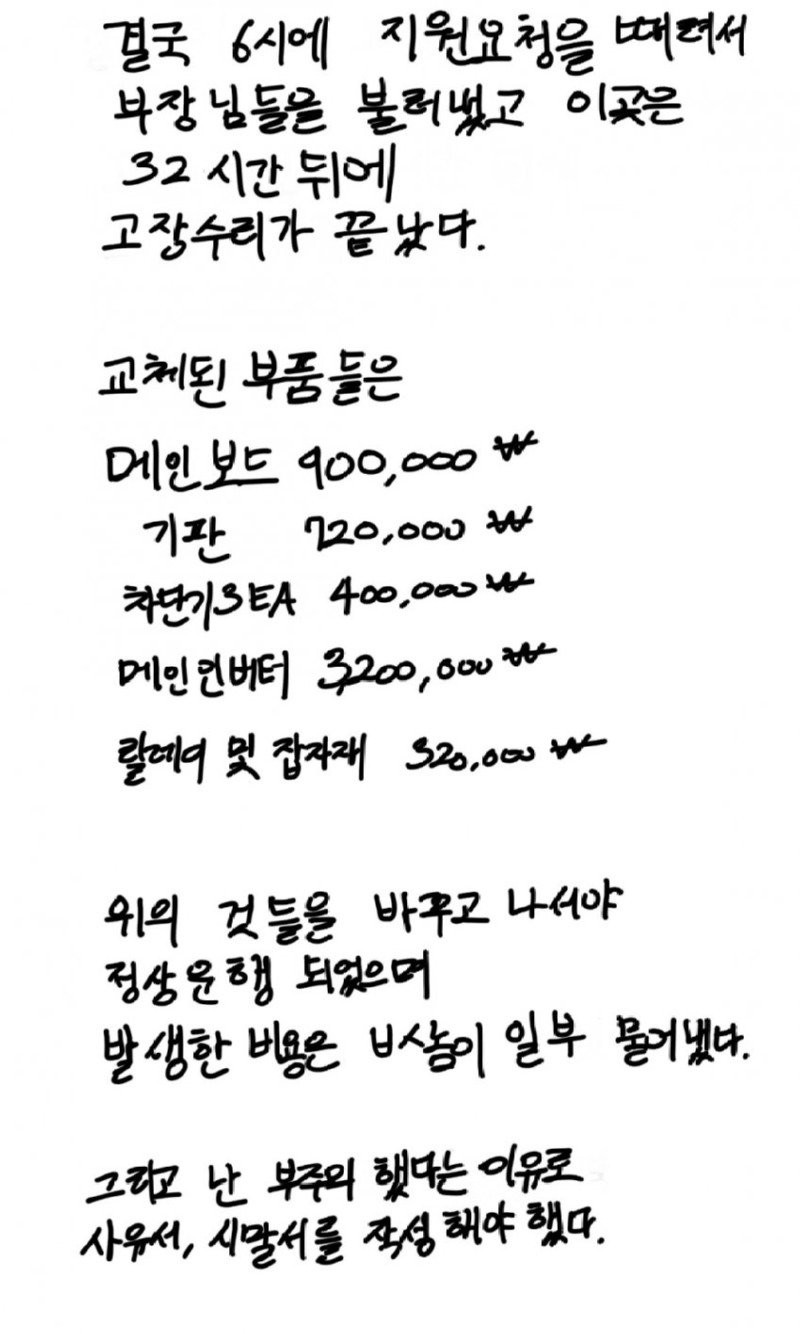 결국 6시에 지원요청을 때려서
부장님들을 불러냈고 이곳은
32시간 뒤에
고장수리가 끝났다.
교체된 부품들은
메인보드 900,000₩
기판 720,000₩
차단기3EA 400,000₩
메인인버터 3,200,000₩
랄에이 및 잡자재 320,000₩
위의 것들을 바꾸고 나서야
정상운행 되었으며
발생한 비용은 ㅂㅅ놈이 일부 물어냈다.
그리고 난 부주의 했다는 이유로
사유서, 시말서를 작성해야 했다.